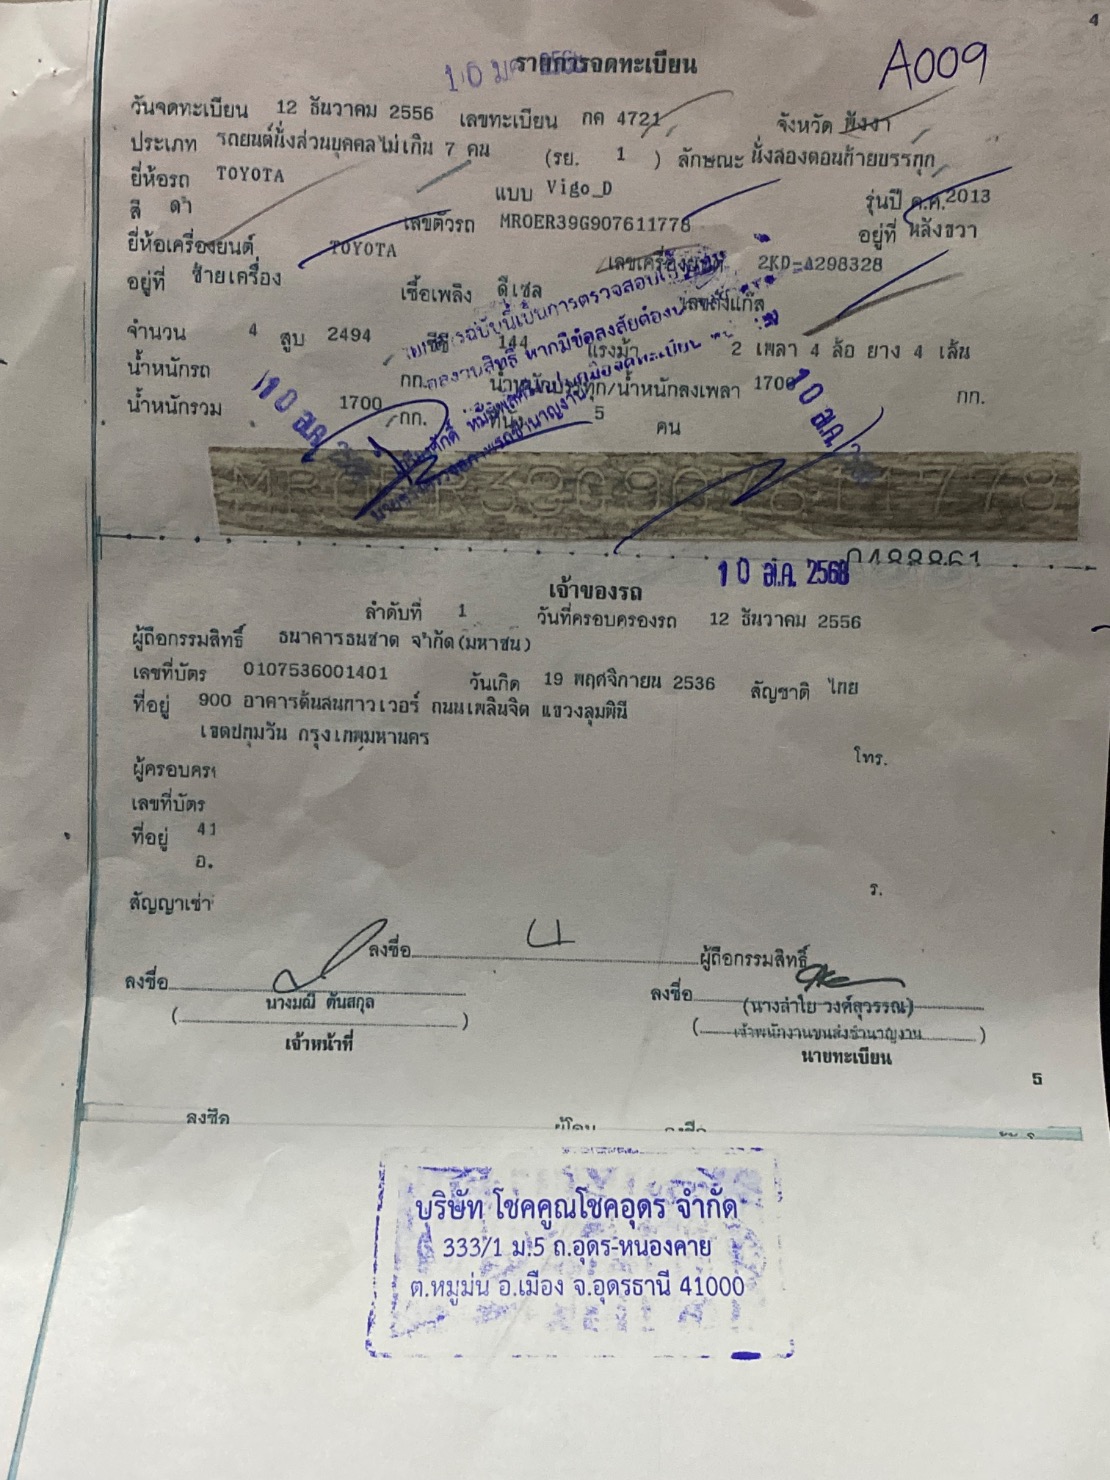 4
รายการจดทะเบียน
A009
วันจดทะเบียน 12 ธันวาคม 2556 เลขทะเบียน กค 4721 จังหวัด พังงา
ประเภท รถยนต์นั่งส่วนบุคคลไม่เกิน 7 คน (รย. 1 ) ลักษณะ นั่งสองตอนท้ายบรรทุก
ยี่ห้อรถ TOYOTA แบบ Vigo_D รุ่นปี ค.ศ.2013
สี ดำ เลขตัวรถ MROER39G907611778 อยู่ที่ หลังขวา
ยี่ห้อเครื่องยนต์ TOYOTA เลขเครื่องยนต์ 2KD-A298328
อยู่ที่ ซ้ายเครื่อง เชื้อเพลิง ดีเซล เลขถังแก๊ส
จำนวน 4 สูบ 2494 ซีซี 144 แรงม้า 2 เพลา 4 ล้อ ยาง 4 เส้น
น้ำหนักรถ กก. น้ำหนักบรรทุก/น้ำหนักลงเพลา 1700 กก.
น้ำหนักรวม 1700 กก. ที่นั่ง 5 คน
10 ม.ค.
10 ม.ค.
0488861
เจ้าของรถ
10 ม.ค. 2568
ลำดับที่ 1 วันที่ครอบครองรถ 12 ธันวาคม 2556
ผู้ถือกรรมสิทธิ์ ธนาคารธนชาต จำกัด(มหาชน)
เลขที่บัตร 0107536001401 วันเกิด 19 พฤศจิกายน 2536 สัญชาติ ไทย
ที่อยู่ 900 อาคารต้นสนทาวเวอร์ ถนนเพลินจิต แขวงลุมพินี
เขตปทุมวัน กรุงเทพมหานคร
โทร.
ผู้ครอบคร
เลขที่บัตร
ที่อยู่ 41
อ.
ร.
สัญญาเช่า
ลงชื่อ ผู้ถือกรรมสิทธิ์
ลงชื่อ นางมณี ตันสกุล ลงชื่อ (นางลำไย วงศ์สุวรรณ)
( ) (เจ้าพนักงานขนส่งชำนาญงาน)
เจ้าหน้าที่ นายทะเบียน
5
ลงชื่อ
บริษัท โชคคูณโชคอุดร จำกัด
333/1 ม.5 ถ.อุดร-หนองคาย
ต.หมูม่น อ.เมือง จ.อุดรธานี 41000